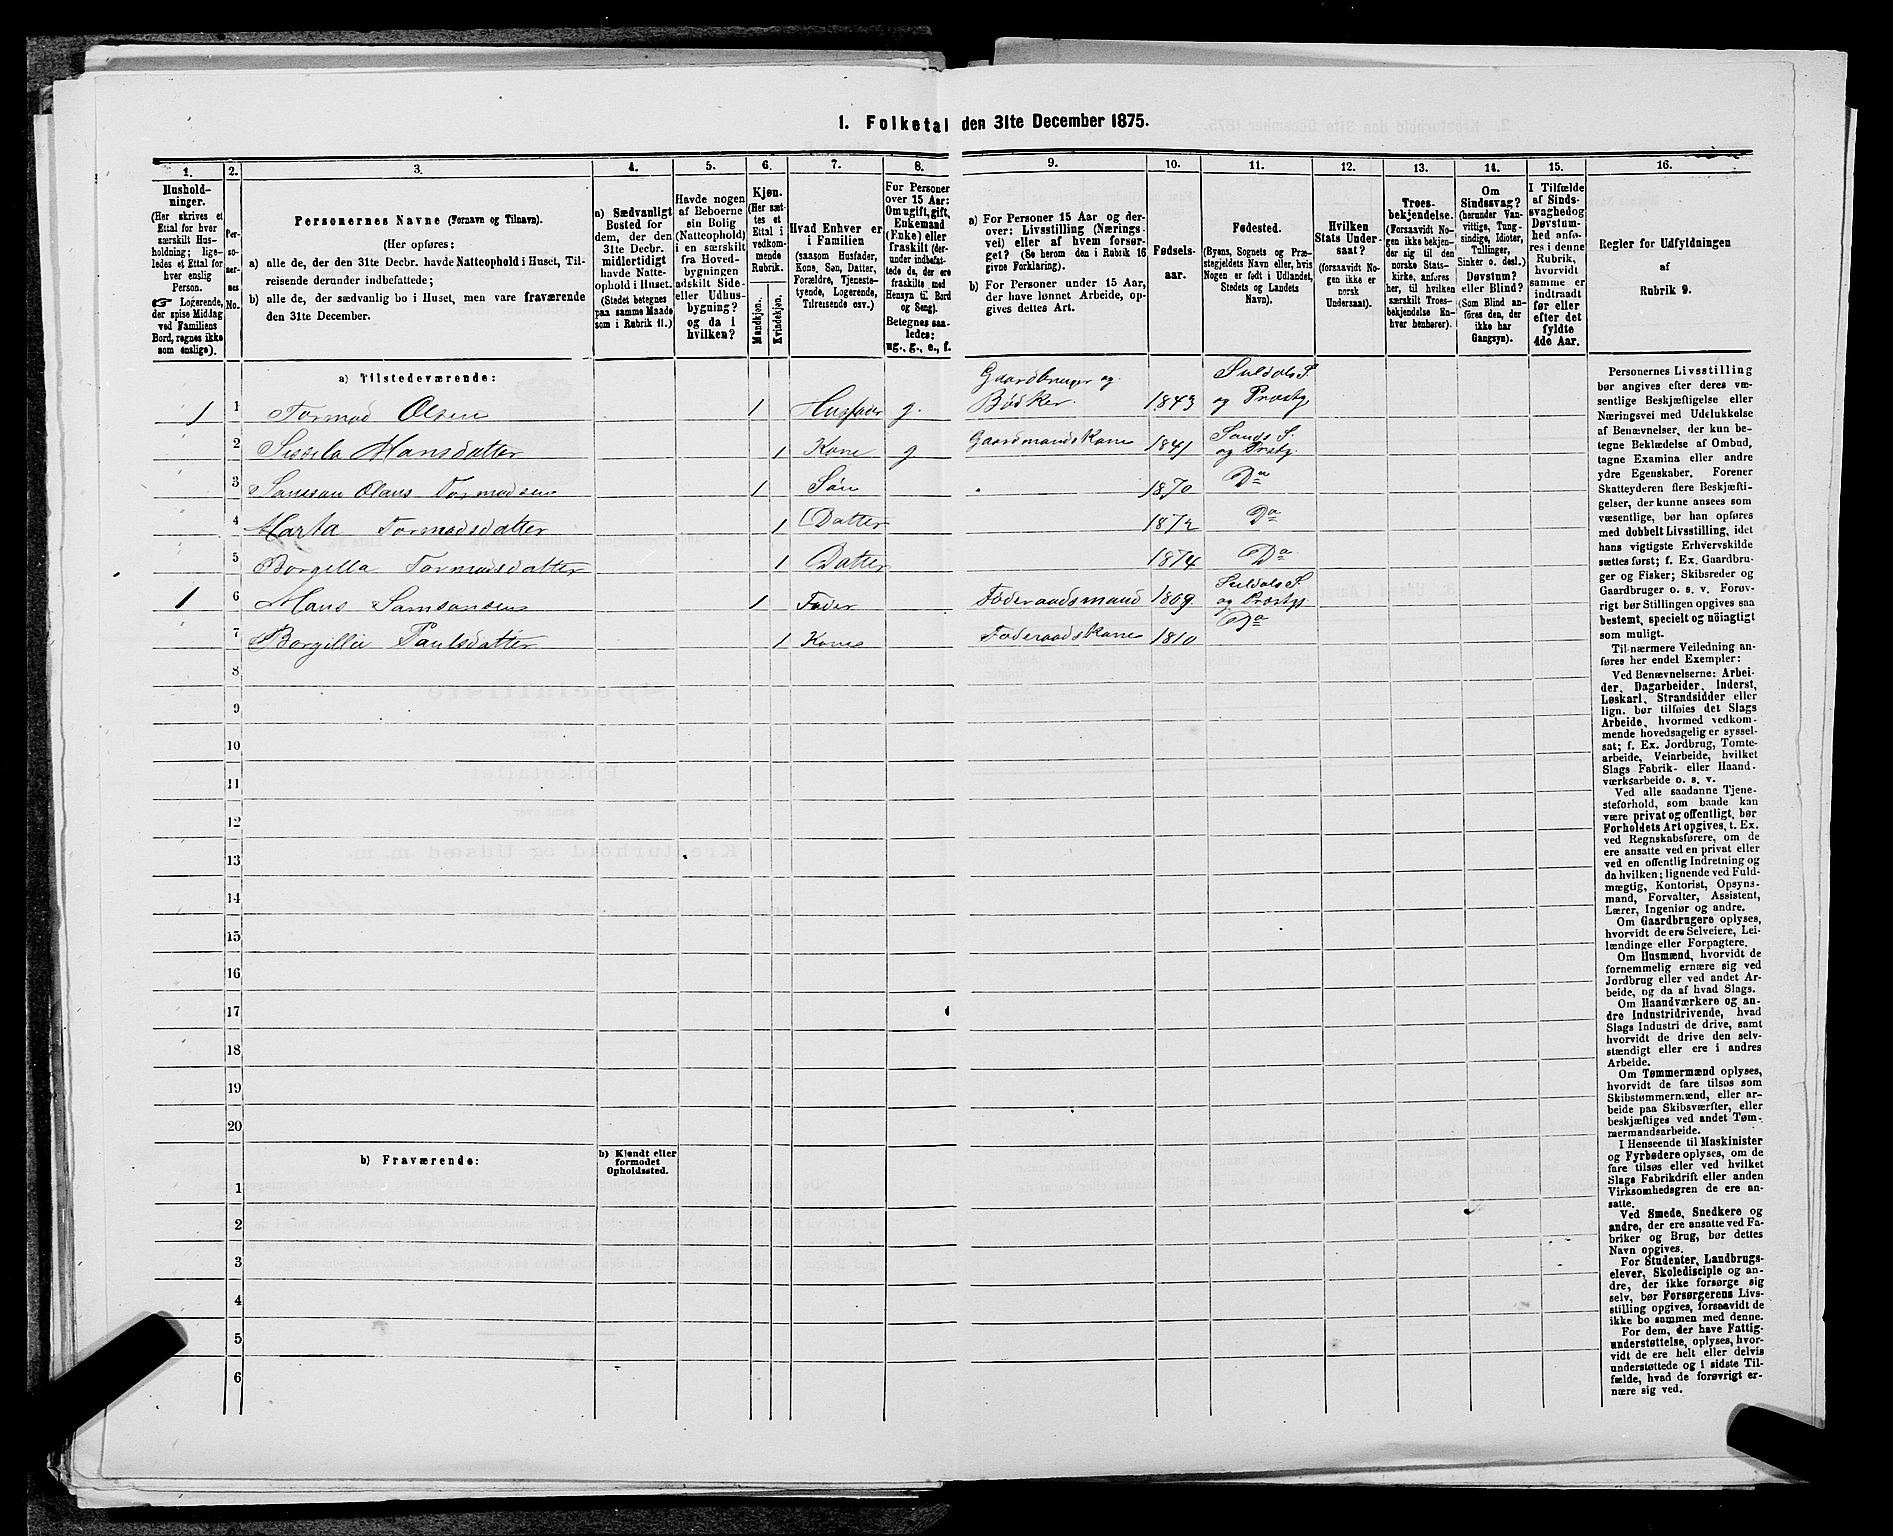 1. Folketal den 31te December 1875.
1. 2. 3. 4. 5. 6. 7. 8. 9. 10. 11. 12. 13. 14. 15. 16.
Hushold-
ninger.
(Her skrives et
Ettal for hver
særskilt Hus-
holdning; lige-
ledes et Ettal for
hver enslig
Person.
☞ Logerende,
der spise Middag
ved Familiens
Bord, regnes ikke
som enslige).
Per-
so-
ner-
nes
No.
Personernes Navne (Fornavn og Tilnavn).
(Her opføres:
a) alle de, der den 31te Decbr. havde Natteophold i Huset, Til-
reisende derunder indbefattede;
b) alle de, der sædvanlig bo i Huset, men vare fraværende
den 31te December.
a) Sædvanligt
Bosted for
dem, der den
31te Decbr.
midlertidigt
havde Natte-
ophold i Huset.
(Stedet betegnes
paa samme Maade
som i Rubrik 11.)
Havde nogen
af Beboerne
sin Bolig
(Natteophold)
i en særskilt
fra Hoved-
bygningen
adskilt Side-
eller Udhus-
bygning?
og da i
hvilken?
Kjøn.
(Her sæt-
tes et
Ettal i
vedkom-
mende
Rubrik.
Mandkjøn.
Kvindekjøn.
Hvad Enhver er
i Familien
(saasom Husfader,
Kone, Søn, Datter,
Forældre, Tjeneste-
tyende, Logerende,
Tilreisende osv.)
For Personer
over 15 Aar:
Om ugift, gift,
Enkemand
(Enke) eller
fraskilt (der-
under indbefat-
tede de, der ere
fraskilte med
Hensyn til Bord
og Seng).
Betegnes saa-
ledes:
ug., g., e., f.
a) For Personer 15 Aar og der-
over: Livsstilling (Nærings-
vei) eller af hvem forsør-
get? (Se herom den i Rubrik 16
givne Forklaring).
b) For Personer under 15 Aar,
der have lønnet Arbeide, op-
gives dettes Art.
Fødsels-
aar.
Fødested.
(Byens, Sognets og Præ-
stegjeldets Navn eller, hvis
Nogen er født i Udlandet,
Stedets og Landets
Navn).
Hvilken
Stats Under-
saat?
(forsaavidt No-
gen ikke er
norsk
Undersaat).
Troes-
bekjendelse.
(Forsaavidt No-
gen ikke bekjen-
der sig til den
norske Stats-
kirke, anføres
her, til hvilken
særskilt Troes-
bekjendelse En-
hver henhører).
Om
Sindssvag?
(herunder Van-
vittige, Tung-
sindige, Idioter,
Tullinger,
Sinker o. desl.)
Døvstum?
eller Blind?
(Som Blind an-
føres den, der
ikke har
Gangsyn).
I Tilfælde
af Sinds-
svaghed og
Døvstum-
hed anfø-
res i denne
Rubrik,
hvorvidt
samme er
indtraadt
før eller
efter det
fyldte
4de Aar.
Regler for Udfyldningen
af
Rubrik 9.
a) Tilstedeværende:
1 1 Tormod Olsen 1 Husfader g. Gaardbruger og Bødker. 1843 Suldals S. og Præstg.
2 Sissela Hansdatter 1 Kone g Gaardmandskone 1841 Sands S. og Prstg.
3 Samson Olaus Tormodsen 1 Søn 1870 Do
4 Marta Tormodsdatter 1 Datter 1872 Do
5 Borgilla Tormodsdatter 1 Datter 1874 Do
1 6 Hans Samsonsen 1 Fader Føderaadsmand 1809. Suldals S. og Præstg.
7 Borgilla Paulsdatter 1 Kone Føderaadskone 1810 Do
8
9
10
11
12
13
14
15
16
17
18
19
20
b) Fraværende: b) Kjendt eller
formodet
Opholdssted.
1
2
3
4
5
6
Personernes Livsstilling
bør angives efter deres væ-
sentlige Beskjæftigelse eller
Næringsvei med Udelukkelse
af Benævnelser, der kun be-
tegne Beklædelse af Ombud,
tagne Examina eller andre
ydre Egenskaber. Forener
Skatteyderen flere Beskjæfti-
gelser, der kunne ansees som
væsentlige, bør han opføres
med dobbelt Livsstilling, idet
hans vigtigste Erhvervskilde
sættes først; f. Ex. Gaardbru-
ger og Fisker; Skibsreder og
Gaardbruger o. s. v. Forøv-
rigt bør Stillingen opgives saa
bestemt, specielt og nøiagtigt
som muligt.
Til nærmere Veiledning an-
føres her endel Exempler:
Ved Benævnelserne: Arbei-
der, Dagarbeider, Inderst,
Løskarl, Strandsidder eller
lign. bør tilføies det Slags
Arbeide, hvormed vedkom-
mende hovedsagelig er syssel-
sat; f. Ex. Jordbrug, Tomte-
arbeide, Veiarbeide, hvilket
Slags Fabrik- eller Haand-
værksarbeide o. s. v.
Ved alle saadanne Tjene-
steforhold, som baade kan
være privat og offentligt, bør
Forholdets Art opgives, t. Ex.
ved Regnskabsførere, om de
ere ansatte ved en privat eller
ved en offentlig Indretning og
da hvilken; lignende ved Fuld-
mægtig, Kontorist, Opsyns-
mand, Forvalter, Assistent,
Lærer, Ingeniør og andre.
Om Gaardbrugere oplyses,
hvorvidt de ere Selveiere, Lei-
lændinge eller Forpagtere.
Om Husmænd, hvorvidt de
fornemmelig ernære sig ved
Jordbrug eller ved andet Ar-
beide, og da af hvad Slags.
Om Haandværkere og an-
dre Industridrivende, hvad
Slags Industri de drive, samt
hvorvidt de drive den selv-
stændigt eller ere i andres
Arbeide.
Om Tømmermænd oplyses,
hvorvidt de fare tilsøs som
Skibstømmermænd, eller ar-
beide paa Skibsværfter, eller
beskjæftiges ved andet Tøm-
mermandsarbeide.
I Henseende til Maskinister
og Fyrbødere oplyses, om de
fare tilsøs eller ved hvilket
Slags Fabrikdrift eller anden
Virksomhedsgren de ere an-
satte.
Ved Smede, Snedkere og
andre, der ere ansatte ved Fa-
briker og Brug, bør dettes
Navn opgives.
For Studenter, Landbrugs-
elever, Skoledisciple og an-
dre, der ikke forsørge sig
selv, bør Forsørgerens Livs-
stilling opgives, forsaavidt de
ikke bo sammen med denne.
For dem, der have Fattig-
understøttelse, oplyses, hvor-
vidt de ere helt eller delvis
understøttede og i sidste Til-
fælde, hvad de forøvrigt er-
nære sig ved.